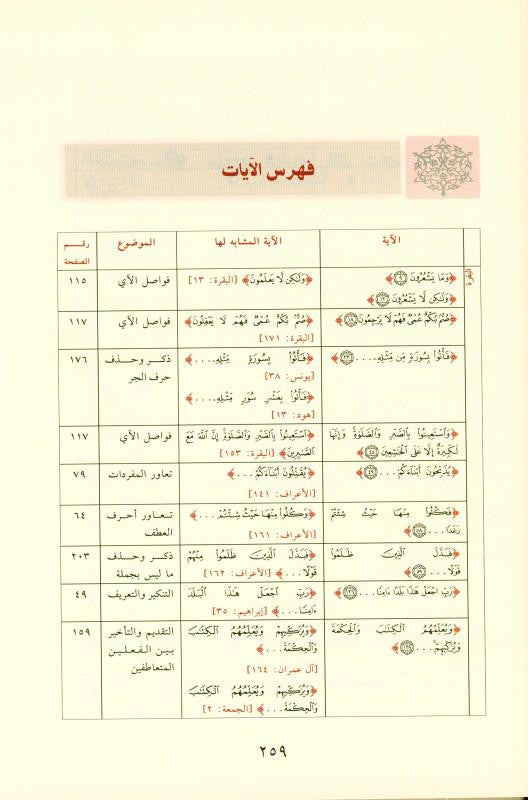 فهرس الآيات
الآية
الآية المشابه لها
الموضوع
رقـــم
الصفحة
البقرة
﴿وَمَا يَشْعُرُونَ ٩﴾
﴿وَلَٰكِن لَّا يَشْعُرُونَ ١٢﴾
﴿وَلَٰكِن لَّا يَعْلَمُونَ﴾ [البقرة: ١٣]
فواصل الآي
١١٥
﴿صُمٌّ بُكْمٌ عُمْيٌ فَهُمْ لَا يَرْجِعُونَ ١٨﴾
﴿صُمٌّ بُكْمٌ عُمْيٌ فَهُمْ لَا يَعْقِلُونَ﴾
[البقرة: ١٧١]
فواصل الآي
١١٧
﴿فَأْتُوا۟ بِسُورَةٍ مِّن مِّثْلِهِۦ... ٢٣﴾
﴿فَأْتُوا۟ بِسُورَةٍ مِّثْلِهِۦ...﴾
[يونس: ٣٨]
﴿فَأْتُوا۟ بِعَشْرِ سُوَرٍ مِّثْلِهِۦ...﴾
[هود: ١٣]
ذكـر وحـذف
حرف الجر
١٧٦
﴿وَٱسْتَعِينُوا۟ بِٱلصَّبْرِ وَٱلصَّلَوٰةِ وَإِنَّهَا
لَكَبِيرَةٌ إِلَّا عَلَى ٱلْخَٰشِعِينَ ٤٥﴾
﴿ٱسْتَعِينُوا۟ بِٱلصَّبْرِ وَٱلصَّلَوٰةِ إِنَّ ٱللَّهَ مَعَ
ٱلصَّٰبِرِينَ﴾ [البقرة: ١٥٣]
فواصل الآي
١١٧
﴿يُذَبِّحُونَ أَبْنَآءَكُمْ... ٤٩﴾
﴿يُقَتِّلُونَ أَبْنَآءَكُمْ...﴾
[الأعراف: ١٤١]
تعاور المفردات
٧٩
﴿فَكُلُوا۟ مِنْهَا حَيْثُ شِئْتُمْ
رَغَدًا... ٥٨﴾
﴿وَكُلُوا۟ مِنْهَا حَيْثُ شِئْتُمْ...﴾
[الأعراف: ١٦١]
تعـاور أحـرف
العطف
٦٤
﴿فَبَدَّلَ ٱلَّذِينَ ظَلَمُوا۟
قَوْلًا... ٥٩﴾
﴿فَبَدَّلَ ٱلَّذِينَ ظَلَمُوا۟ مِنْهُمْ
قَوْلًا...﴾ [الأعراف: ١٦٢]
ذكـر وحـذف
ما ليس بجملة
٢٠٣
﴿رَبِّ ٱجْعَلْ هَٰذَا بَلَدًا ءَامِنًا... ١٢٦﴾
﴿رَبِّ ٱجْعَلْ هَٰذَا ٱلْبَلَدَ
ءَامِنًا...﴾ [إبراهيم: ٣٥]
التنكير والتعريف
٤٩
﴿وَيُعَلِّمُهُمُ ٱلْكِتَٰبَ وَٱلْحِكْمَةَ
وَيُزَكِّيهِمْ... ١٢٩﴾
﴿وَيُزَكِّيهِمْ وَيُعَلِّمُهُمُ ٱلْكِتَٰبَ
وَٱلْحِكْمَةَ...﴾
[آل عمران: ١٦٤]
﴿وَيُزَكِّيهِمْ وَيُعَلِّمُهُمُ ٱلْكِتَٰبَ
وَٱلْحِكْمَةَ...﴾ [الجمعة: ٢]
التقديم والتأخير
بـيـن الـفـعـلـيـن
المتعاطفين
١٥٩
٢٥٩